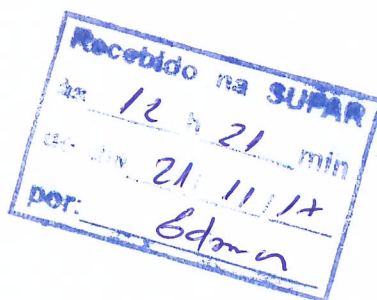 Recebido na SUPAR
às 12 h 21 min
21/11/17
por: Edmar